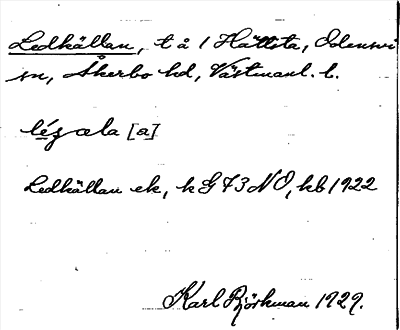 Ledkällan, t å 1 Hättsta, Odensvi
sn, Åkerbo hd, Västmanl. l.
lé̱zala [a]
Ledkällan ek, k G 73 NO, kb 1922
Karl Björkman 1929.